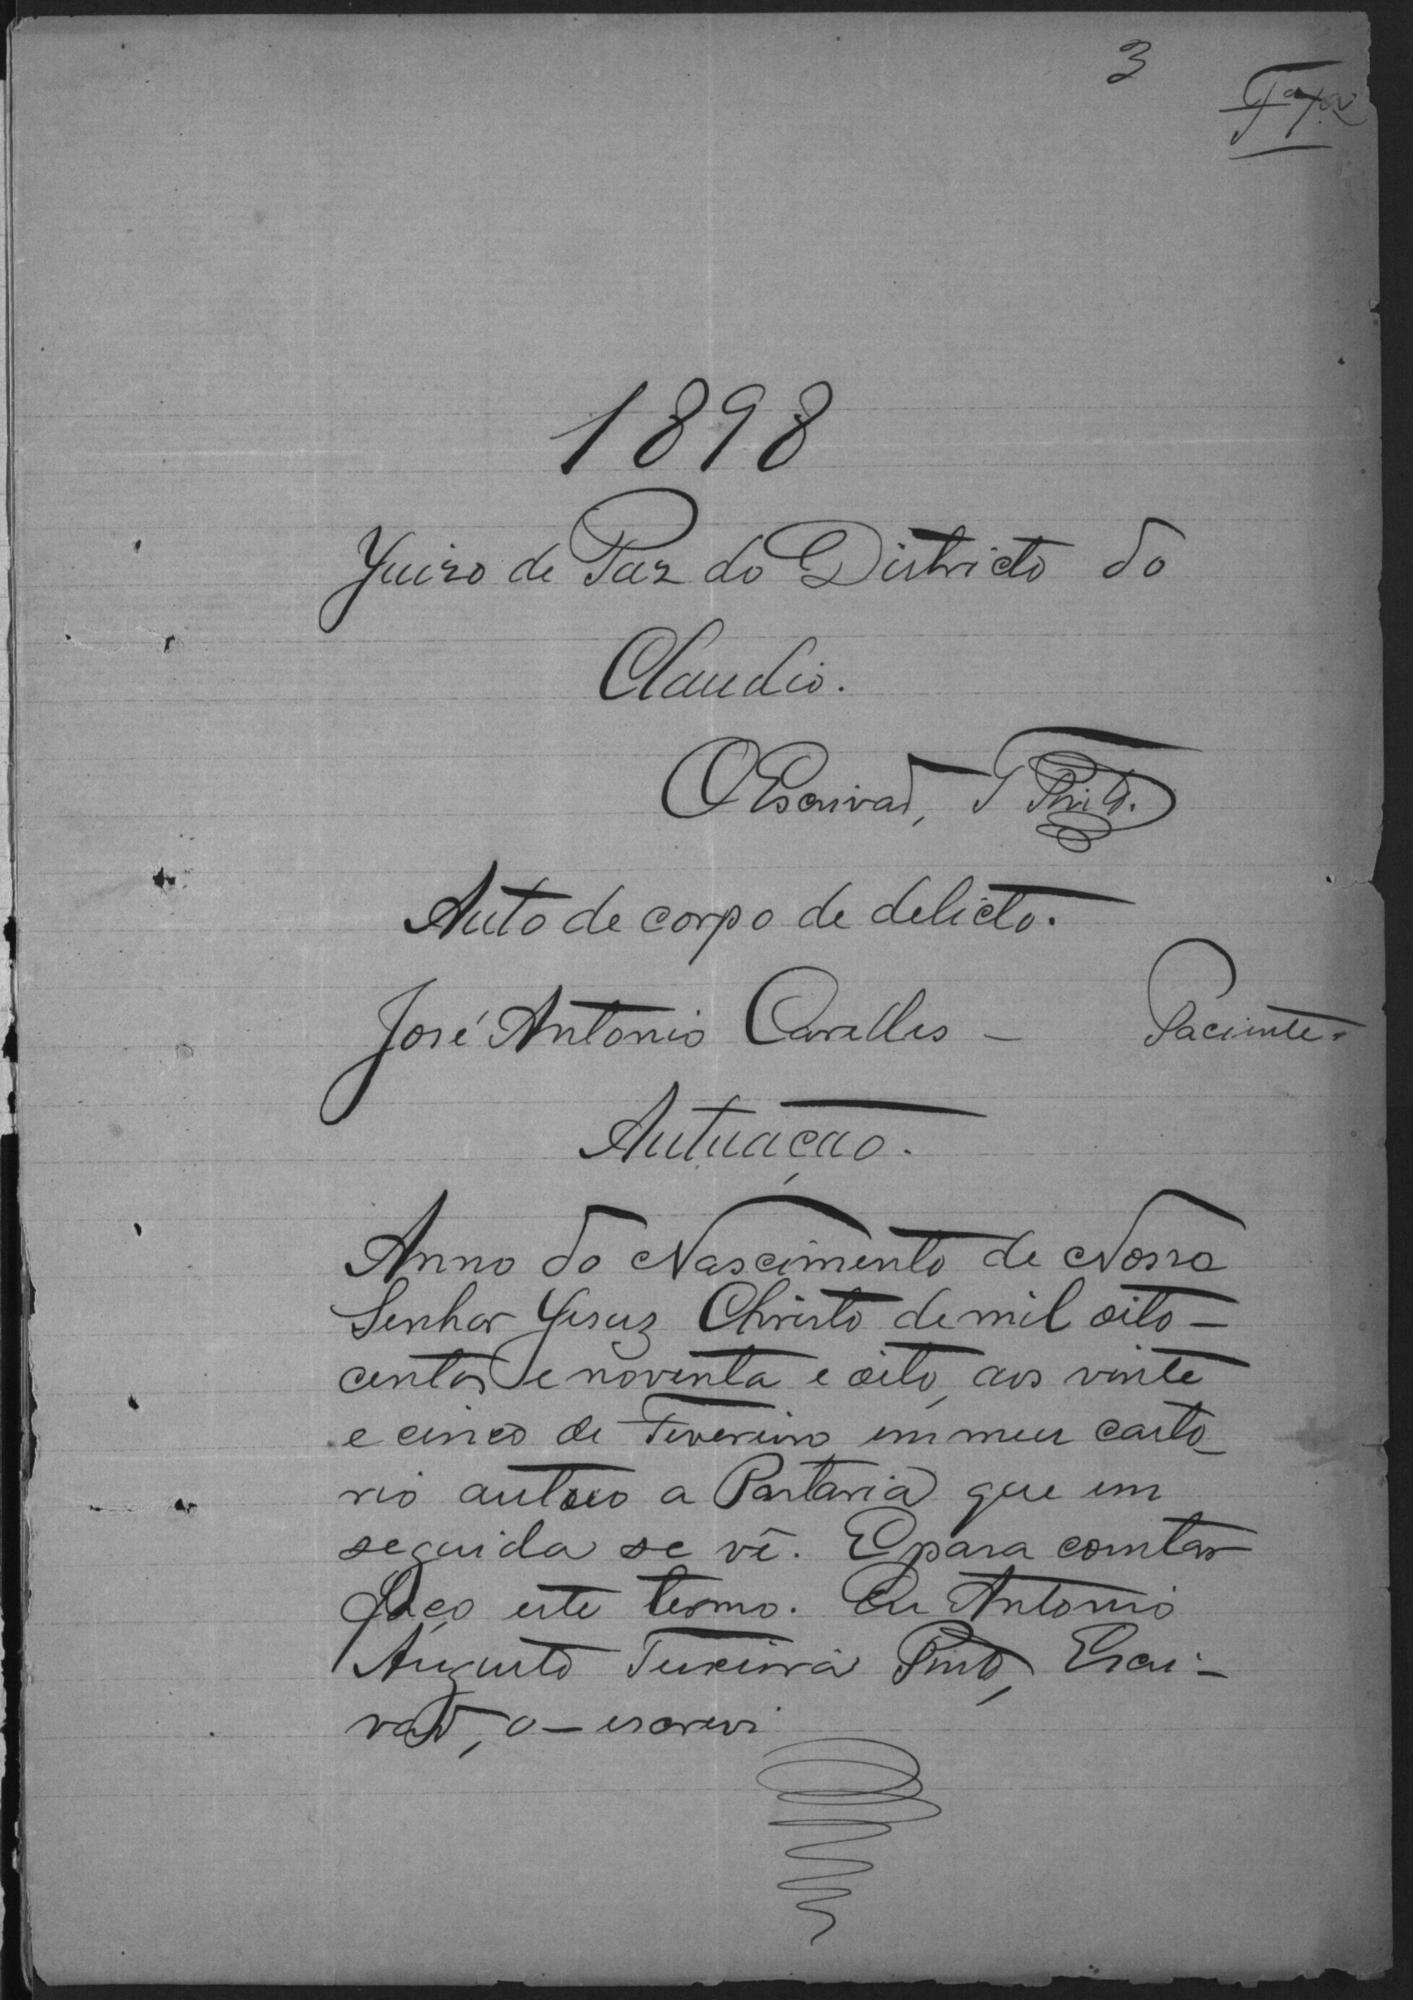 3
1898
Juizo de Paz do Districto do
Claudio.
O Escrivaõ, T Pinto.
Auto de corpo de delicto.
José Antonio - Paciente.
Autuaçao.
Anno do Nascimento de Nosso
Senhor Jesuz Christo de mil oito-
centos e noventa e oito, aos vinte
e cinco de Fevereiro em meu carto-
rio autoo a Portaria que em
seguida se vê. E para constar
faço este termo. Eu Antonio
Augusto Teixeira Pinto, Escri-
vaõ, o-escrevi